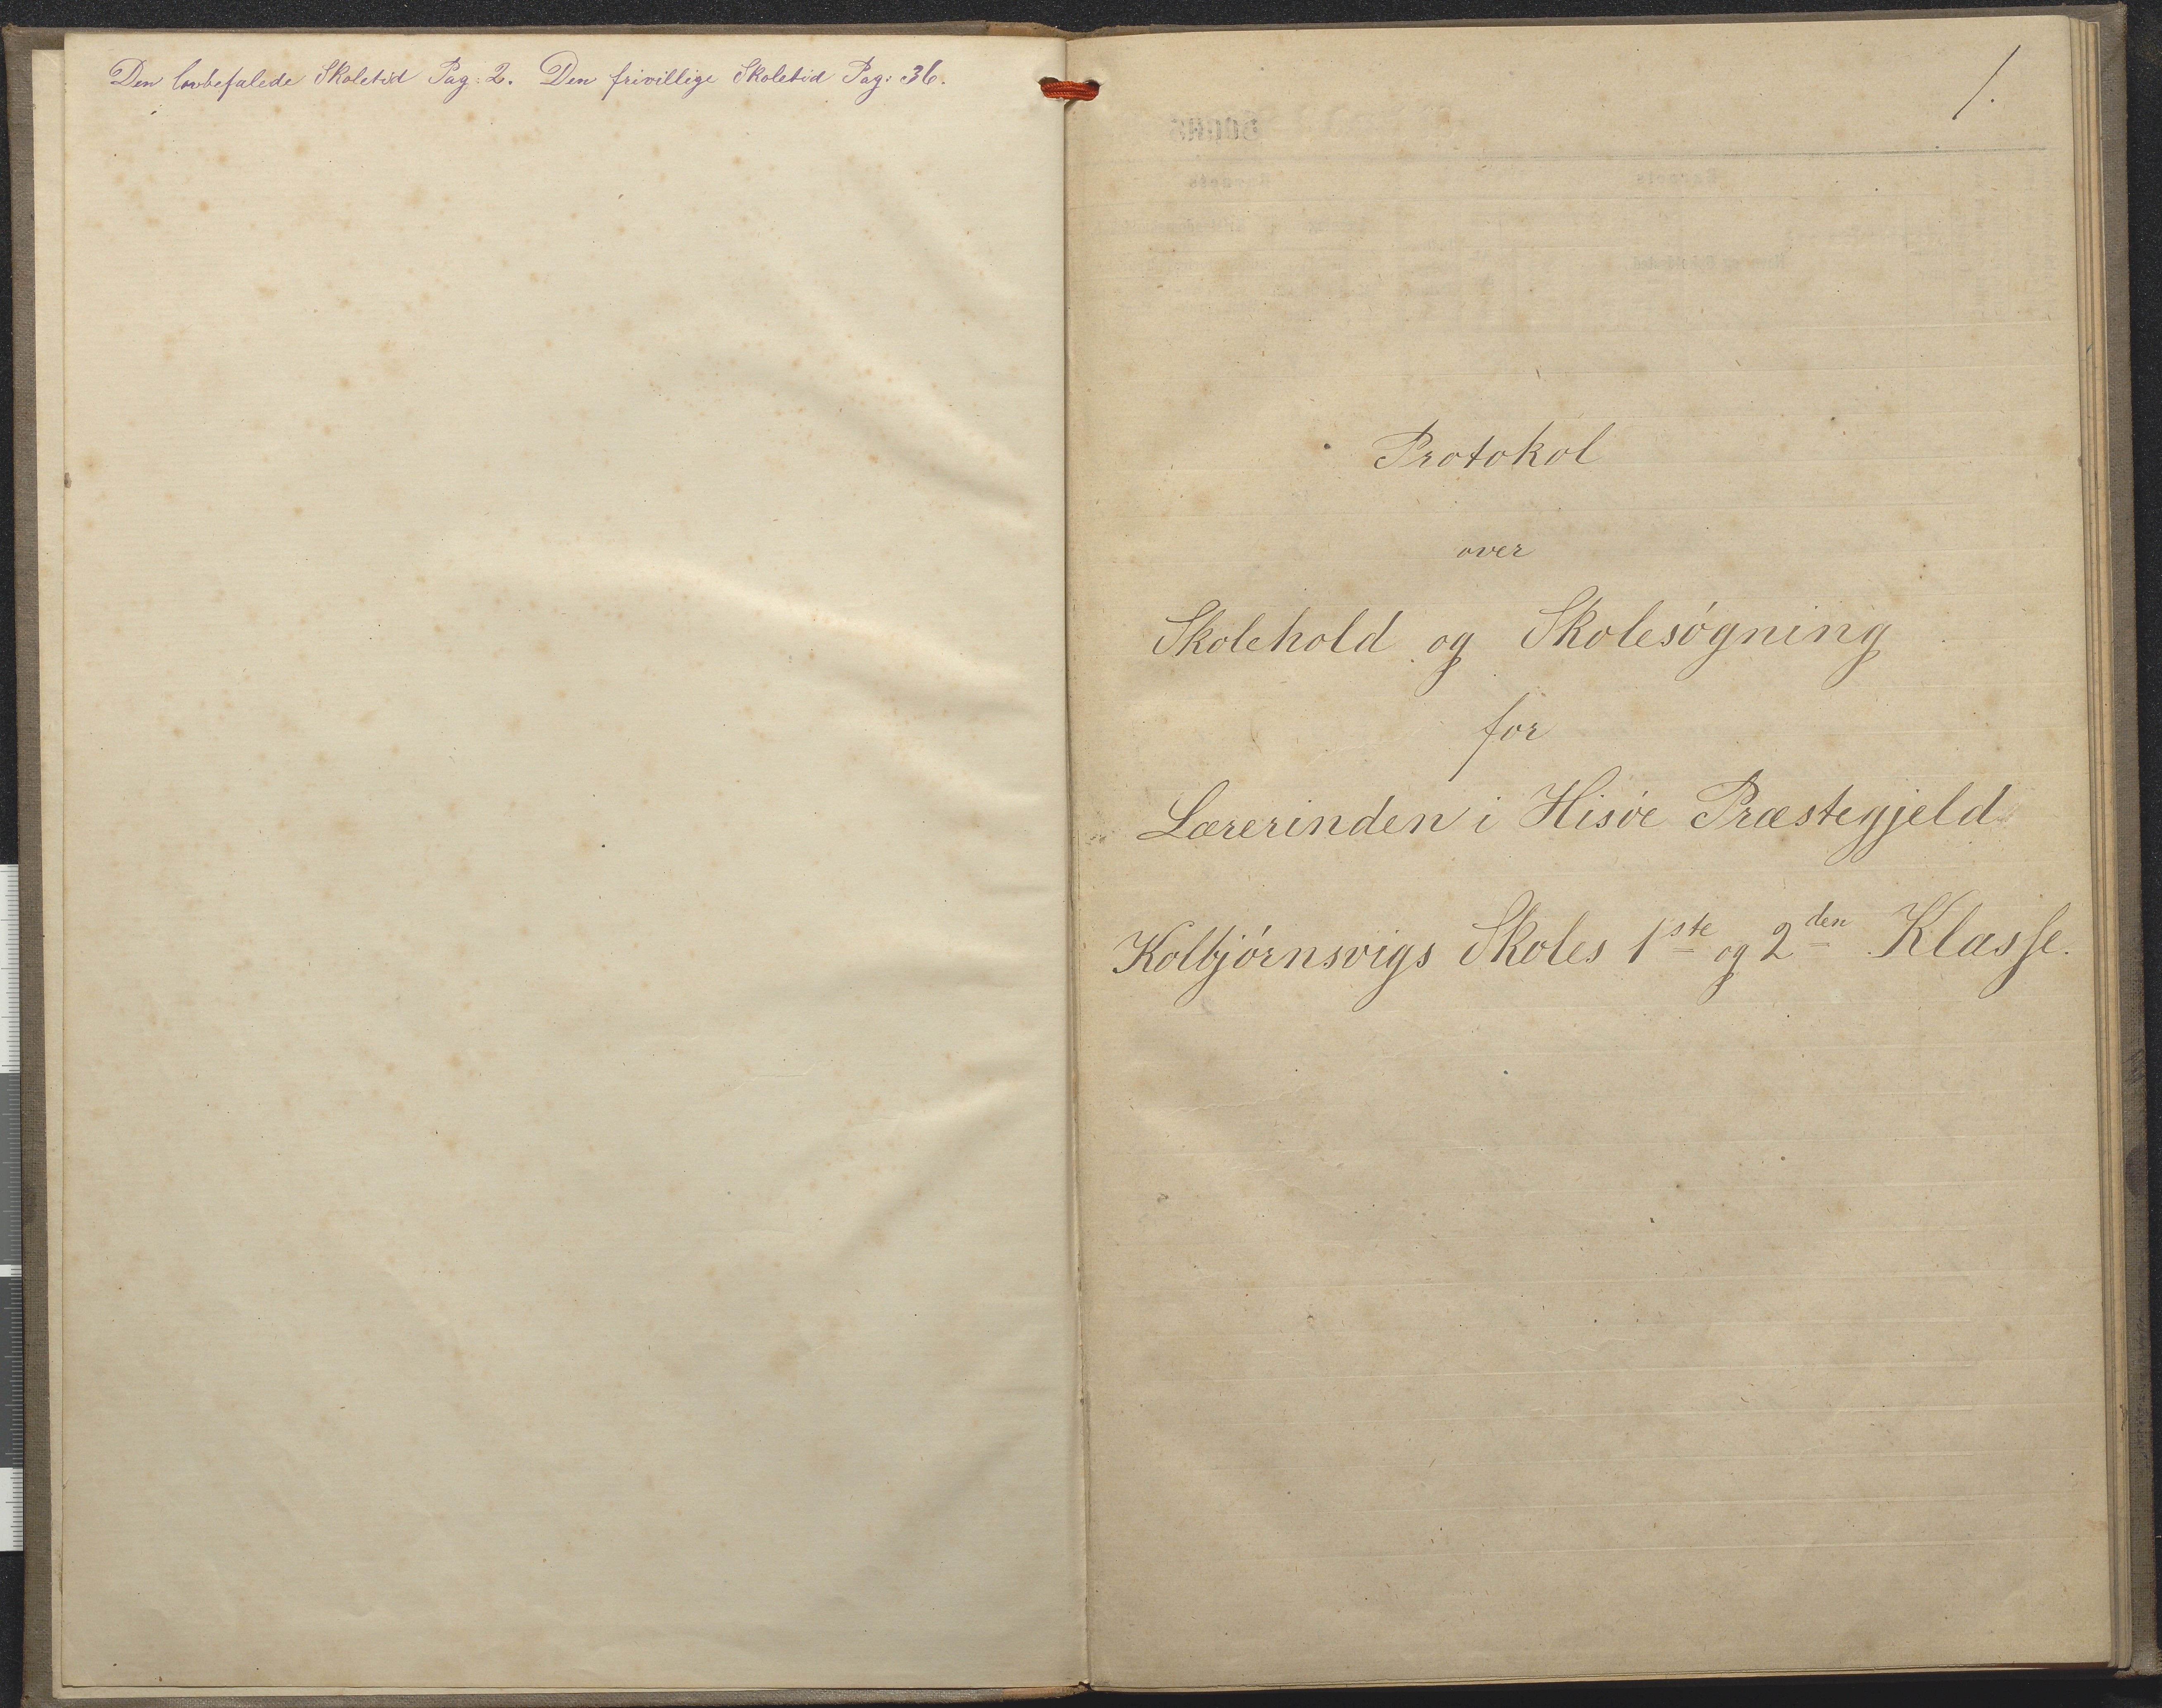 Den lovbefalede Skoletid Pag: 2. Den frivillige Skoletid Pag: 36.
1.
Protokol
over
Skolehold og Skolesøgning
for
Lærerinden i Hisøe Præstegjeld
Kolbjørnsvigs Skoles 1ste og 2den Klasse.